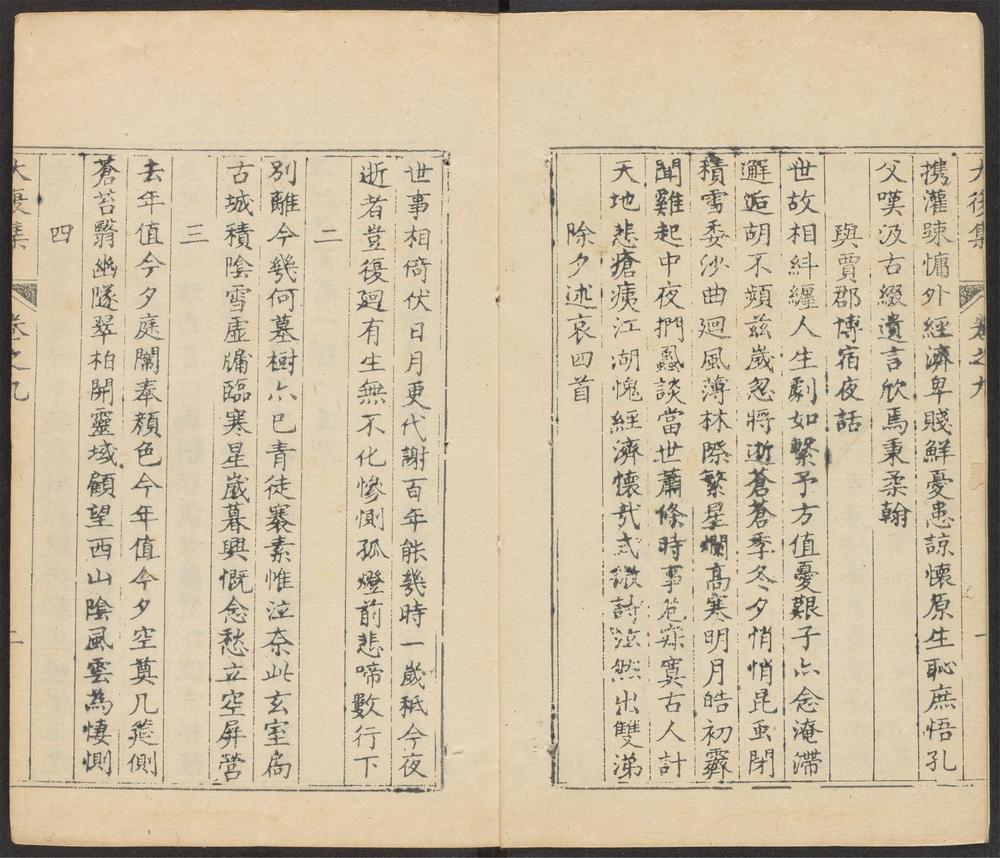 大復集 卷之九 一
携灌疎慵外經濟卑賤鮮憂患諒懷原生恥庶悟孔
父嘆汲古綴遺言欣焉秉柔翰
與賈郡博宿夜話
世故相糾纏人生劇如繫予方值憂艱子亦念淹滯
邂逅胡不頻茲歲忽將逝蒼蒼季冬夕悄悄昆虫閉
積雪委沙曲迴風薄林際繁星爛高寒明月皓初霽
聞雞起中夜捫蝨談當世蕭條時事危寂寞古人計
天地悲瘡痍江湖愧經濟懷哉式微詩泣然出雙涕
除夕述哀四首
世事相倚伏日月更代謝百年能幾時一歲秪今夜
逝者豈復廻有生無不化慘惻孤燈前悲啼數行下
二
別離今幾何墓樹亦已青徒褰素帷泣奈此玄室扃
古城積陰雪虛牖臨寒星歲暮興慨念愁立空屏營
三
去年值今夕庭闈奉顏色今年值今夕空奠几筵側
蒼苔翳幽隧翠柏開靈域顧望西山陰風雲為悽惻
四
大復集 卷之九 二